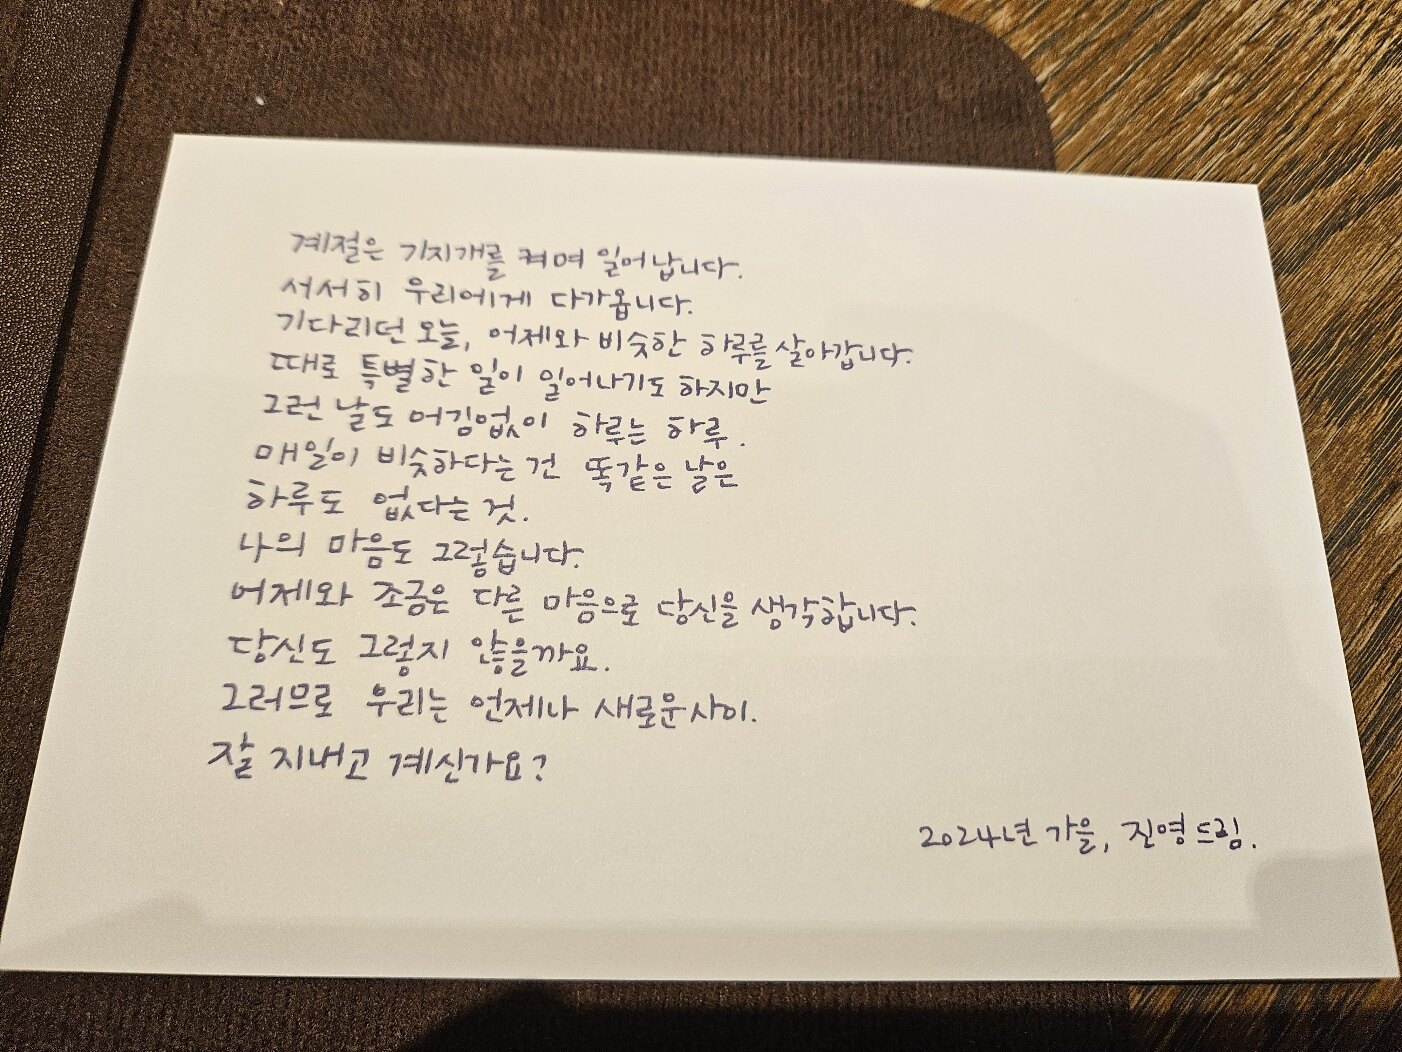 계절은 기지개를 켜며 일어납니다.
서서히 우리에게 다가옵니다.
기다리던 오늘, 어제와 비슷한 하루를 살아갑니다.
때로 특별한 일이 일어나기도 하지만
그런 날도 어김없이 하루는 하루.
매일이 비슷하다는 건 똑같은 날은
하루도 없다는 것.
나의 마음도 그렇습니다.
어제와 조금은 다른 마음으로 당신을 생각합니다.
당신도 그렇지 않을까요.
그러므로 우리는 언제나 새로운 사이.
잘 지내고 계신가요?
2024년 가을, 진영 드림.